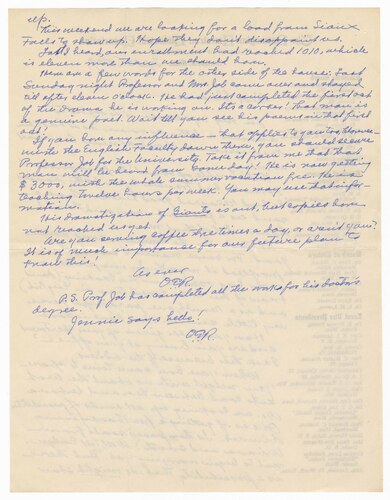 up.
This weekend we are looking for a load from Sioux
Falls to show up. Hope they don't disappoint us.
Last I heard, our enrollment had reached 1010, which
is eleven more than we should have.
Here are a few words for the other side of the house: Last
Sunday night Professor and Mrs Job came over and stayed
till after eleven o'clock. He had just completed the first act
of the drama he is working on. It's a corker! That man is
a genuine poet. Wait till you see his poems in that first
act!
If you have any influence - that applies to you too, Therese -
with the English Faculty down there, you should secure
Professor Job for the University. Take it from me that that
man will be heard from some day! He is now getting
$3000, with the whole summer vacation free. He is
teaching twelve hours per week. You may use that infor-
mation.
His dramatization of Giants is out, but copies have
not reached us yet.
Are you serving coffee five times a day, or aren't you?
It is of much importance for our future plans to
know this!
As ever
OER.
P.S. Prof. Job has completed all the work for his doctor's
degree.
Jennie says hello!
OER.